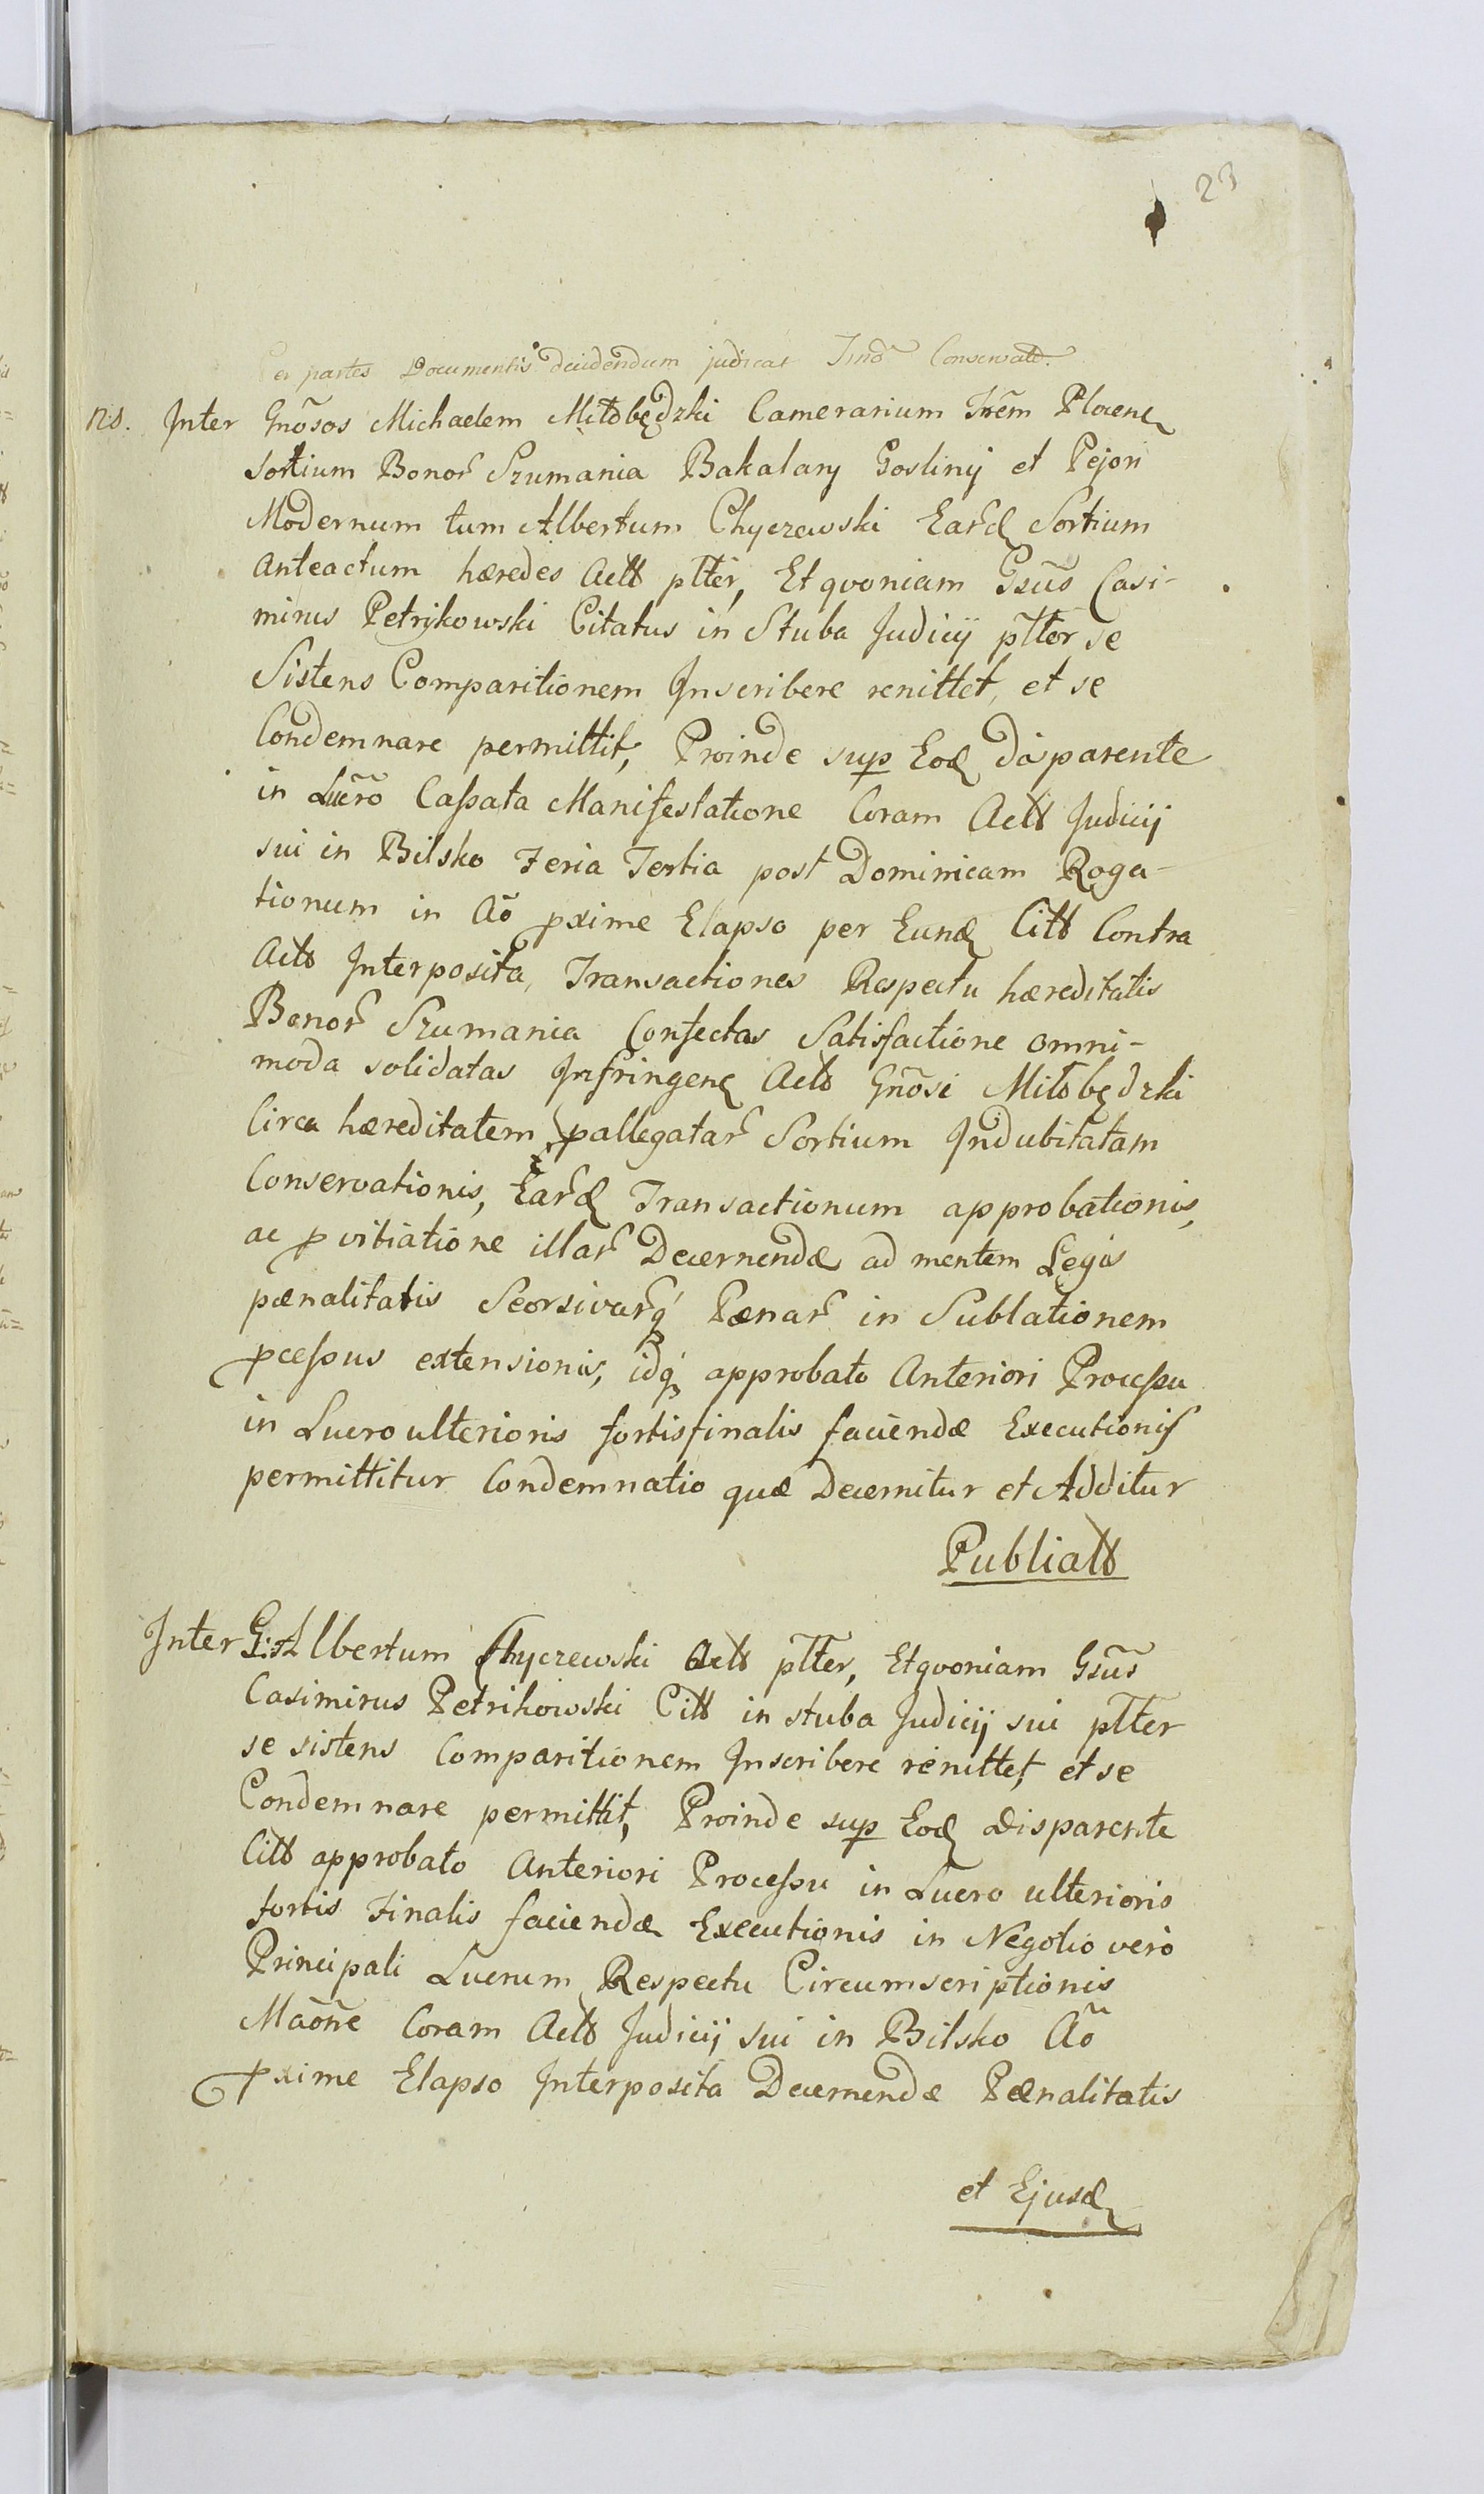 23
er partes Documentis decidendum judicat Imõ Conservatõ.
ns. Inter Gnõsos Michaelem Miłobędzki Camerarium Trẽm Plocenę
sortium Bonor̃ Szumania Bakalary Gosliny et Pejori
Modernum tum Albertum Chyczewski Ear̃d Sortium
Anteactum hæredes Actt pltẽr, Et qvoniam Gsũs Casi-
mirus Petrykowski Citatus in Stuba Judicij pltẽr se
Sistens Comparitionem Inscribere renittet, et se
Condemnare permittit, Proinde sup Eod disparente
in Lucrõ Cassata Manifestatione Coram Actt Judicij
sui in Bilsko Feria Tertia post Dominicam Roga-
tionum in Aõ pxime Elapso per Eund Citt Contra
Actt Interposita, Transactiones Respectu hæreditatis
Bonor̃ Szumania Confectas Satisfactione omni-
moda solidatas Infringenę Actt Gnõsi Miłobędzki
Circa hæreditatem pallegatar̃ Sortium Indubitatam
Conservationis, Ear̃d Transactionum approbationis,
ac p vitiatione illar̃ Decernendæ ad mentem Legis
pænalitatis Seorsivar̃q Pænar̃ in Sublationem
pcessus extensionis, idq approbato Anteriori Processu
in Lucro ulterioris fortisfinalis faciendæ Executionis
permittitur Condemnatio quæ Decernitur et Additur
Publicatt
Inter G: Albertum Chyczewski Actt pltẽr, Etqvoniam Gsũs
Casimirus Petrikowski Citt in stuba Judicij sui pltẽr
se sistens Comparitionem Inscribere renittet, et se
Condemnare permittit, Proinde sup Eod Disparente
Citt approbato Anteriori Processu in Lucro ulterioris
fortis Finalis faciendæ Executionis in Negotio vero
Principali Lucrum Respectu Circumscriptionis
Maõne Coram Actt Judicij sui in Bilsko Aõ
pxime Elapso Interposita Decernendæ Pænalitatis
et Ejusd